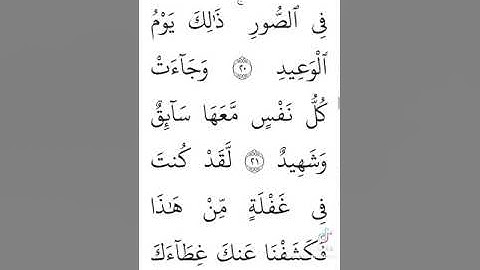 فِى ٱلصُّورِ ۚ ذَٰلِكَ يَوْمُ
ٱلْوَعِيدِ ٢٠ وَجَآءَتْ
كُلُّ نَفْسٍ مَّعَهَا سَآئِقٌ
وَشَهِيدٌ ٢١ لَّقَدْ كُنتَ
فِى غَفْلَةٍ مِّنْ هَٰذَا
فَكَشَفْنَا عَنكَ غِطَآءَكَ